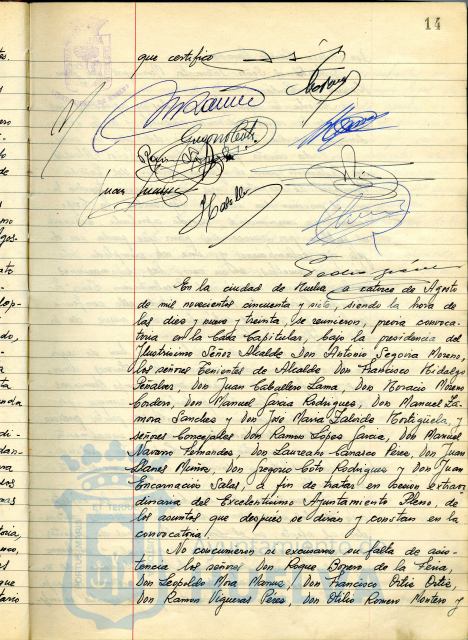 14
que certifico
En la ciudad de Huelva, a catorce de Agosto
de mil novecientos cincuenta y siete, siendo la hora de
las diez y nueve y treinta, se reunieron, previa convoca-
toria en la Casa Capitular, bajo la presidencia del
Ilustrísimo Señor Alcalde Don Antonio Segovia Moreno,
los señores Tenientes de Alcalde Don Francisco Hidalgo
Peñalver, Don Juan Caballero Lama, Don Horacio Moreno
Cordero, Don Manuel Garcia Rodriguez, Don Manuel Za-
mora Sanchez y Don José Maria Zalvide Hortigüela, y
señores Concejales Don Ramon López Garcia, Don Manuel
Navarro Fernandez, Don Laureano Canasco Perez, Don Juan
Llanes Muñoz, Don Gregorio Coto Rodriguez y Don Juan
Encarnación Salas, a fin de tratar en sesion extraor
dinaria del Excelentísimo Ayuntamiento Pleno, de
los asuntos que despues se dirán y constan en la
convocatoria.
No concurrieron ni excusaron su falta de asis-
tencia los señores Don Roque Bozero de la Feria,
Don Leopoldo Mora Manuz, Don Francisco Ortiz Ortiz,
Don Ramon Vigueras Perez, Don Otilio Romero Montero y